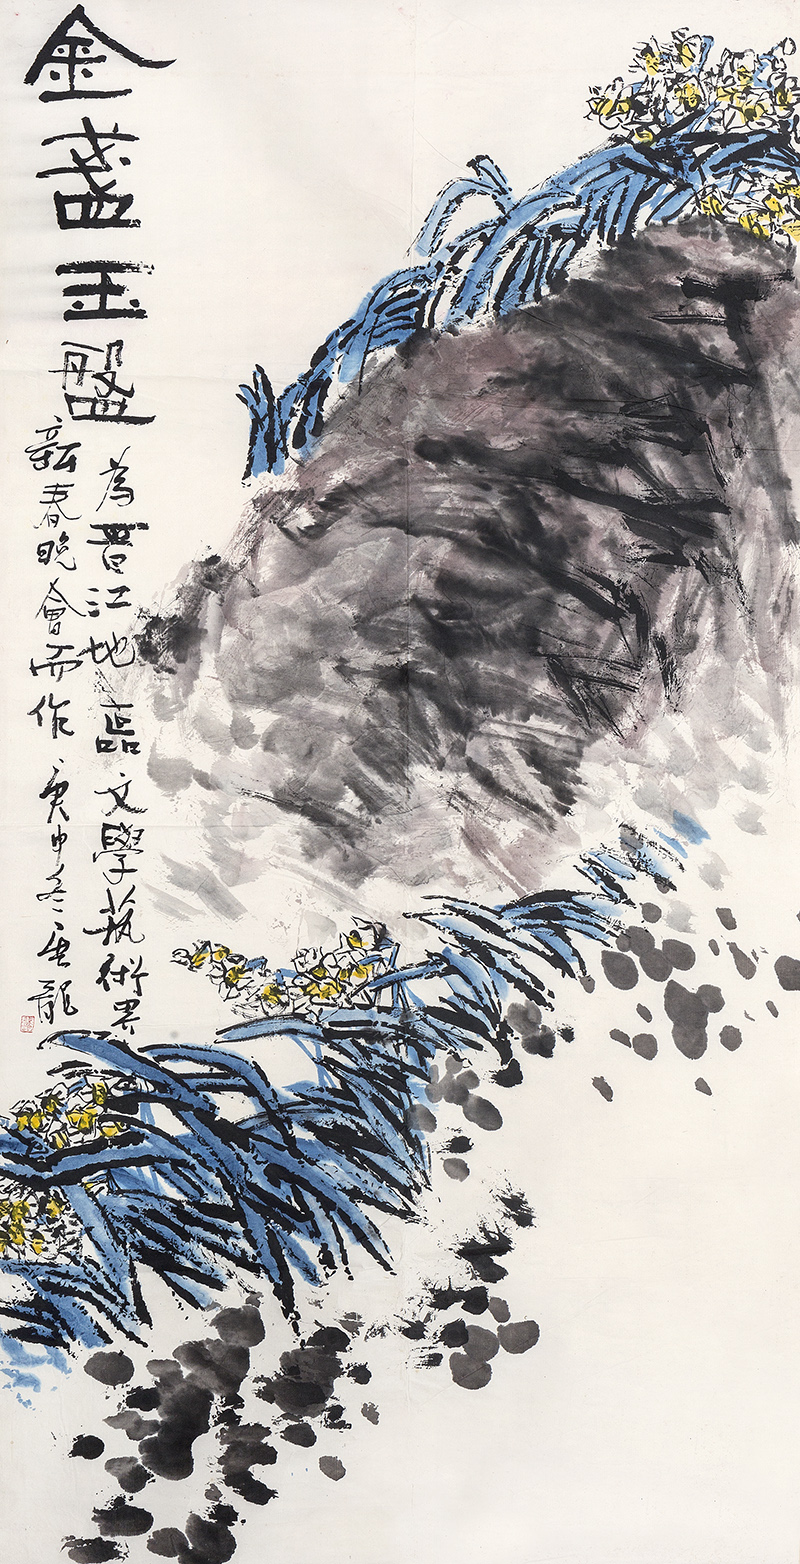 金盏玉盤
為晋江地區文學藝術界
新春晚會而作 庚申冬 龍